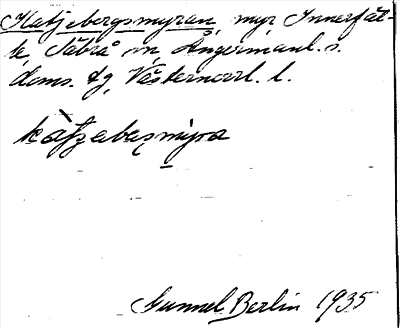 Katjebergsmyran, myr Innerfäl-
le, Säbrå sn, Ångermanl. s.
doms. tg, Västernorrl. l.
kàtjebæʂmyra
Gunnel Berlin 1935